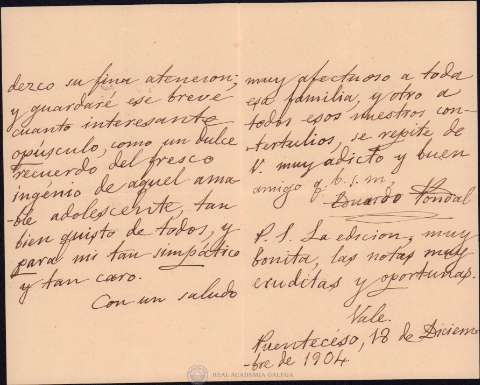 dezco su fina atencion;
y guardaré ese breve
cuanto interesante
opúsculo, como un dulce
recuerdo del fresco
ingénio de aquel ama-
-ble adolescente, tan
bien quisto de todos, y
para mi tan simpático
y tan caro.
Con un saludo
muy afectuoso a toda
esa familia, y otro a
todos esos nuestros con-
-tertulios, se repite de
V. muy adicto y buen
amigo q. b. s. m,
Eduardo Pondal
P. S. La edicion, muy
bonita, las notas muy
eruditas y oportunas.
Vale.
Puentecéso, 18 de Diciem-
-bre de 1904
REAL ACADEMIA GALEGA